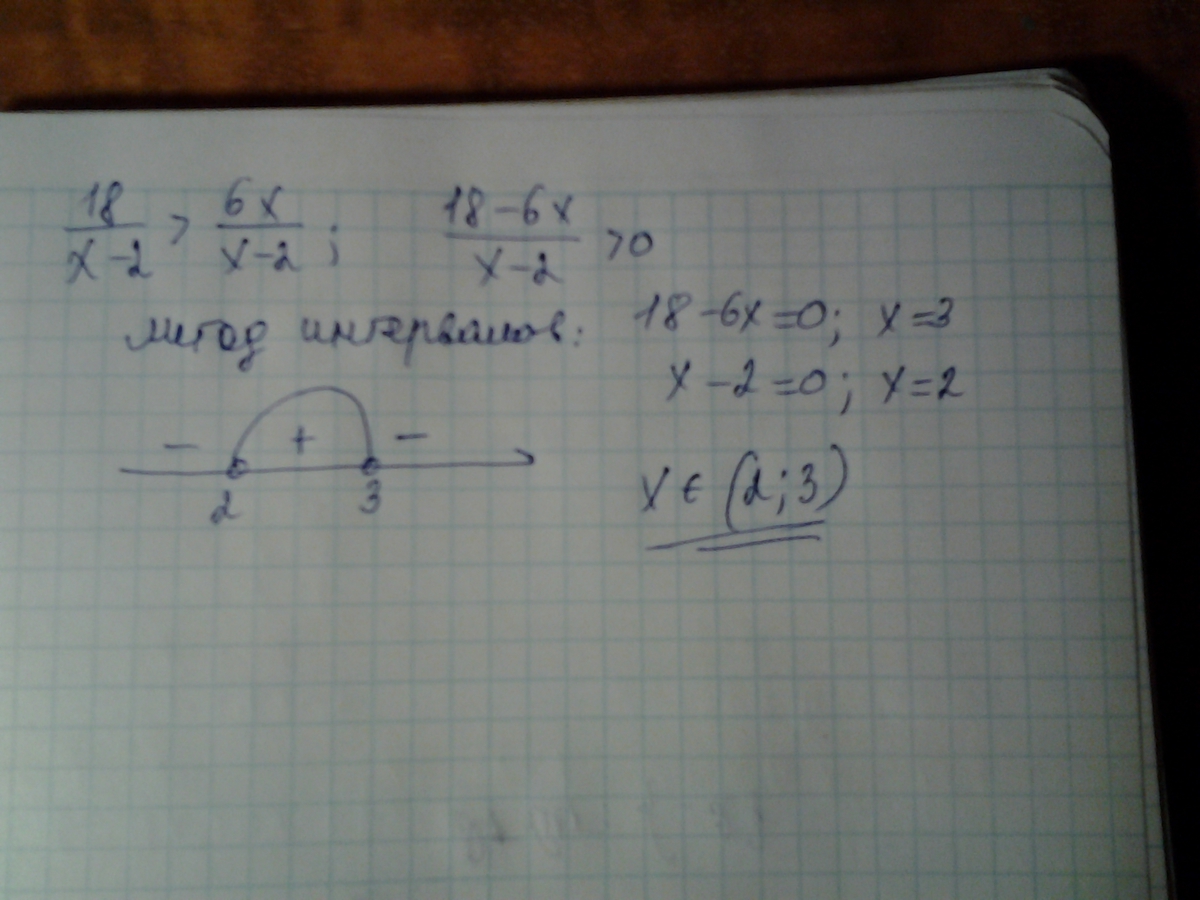 18/(x-2) > 6x/(x-2); (18-6x)/(x-2) >0
метод интервалов: 18-6x=0; x=3
x-2=0; x=2
- + -
2 3
x ∈ (2;3)